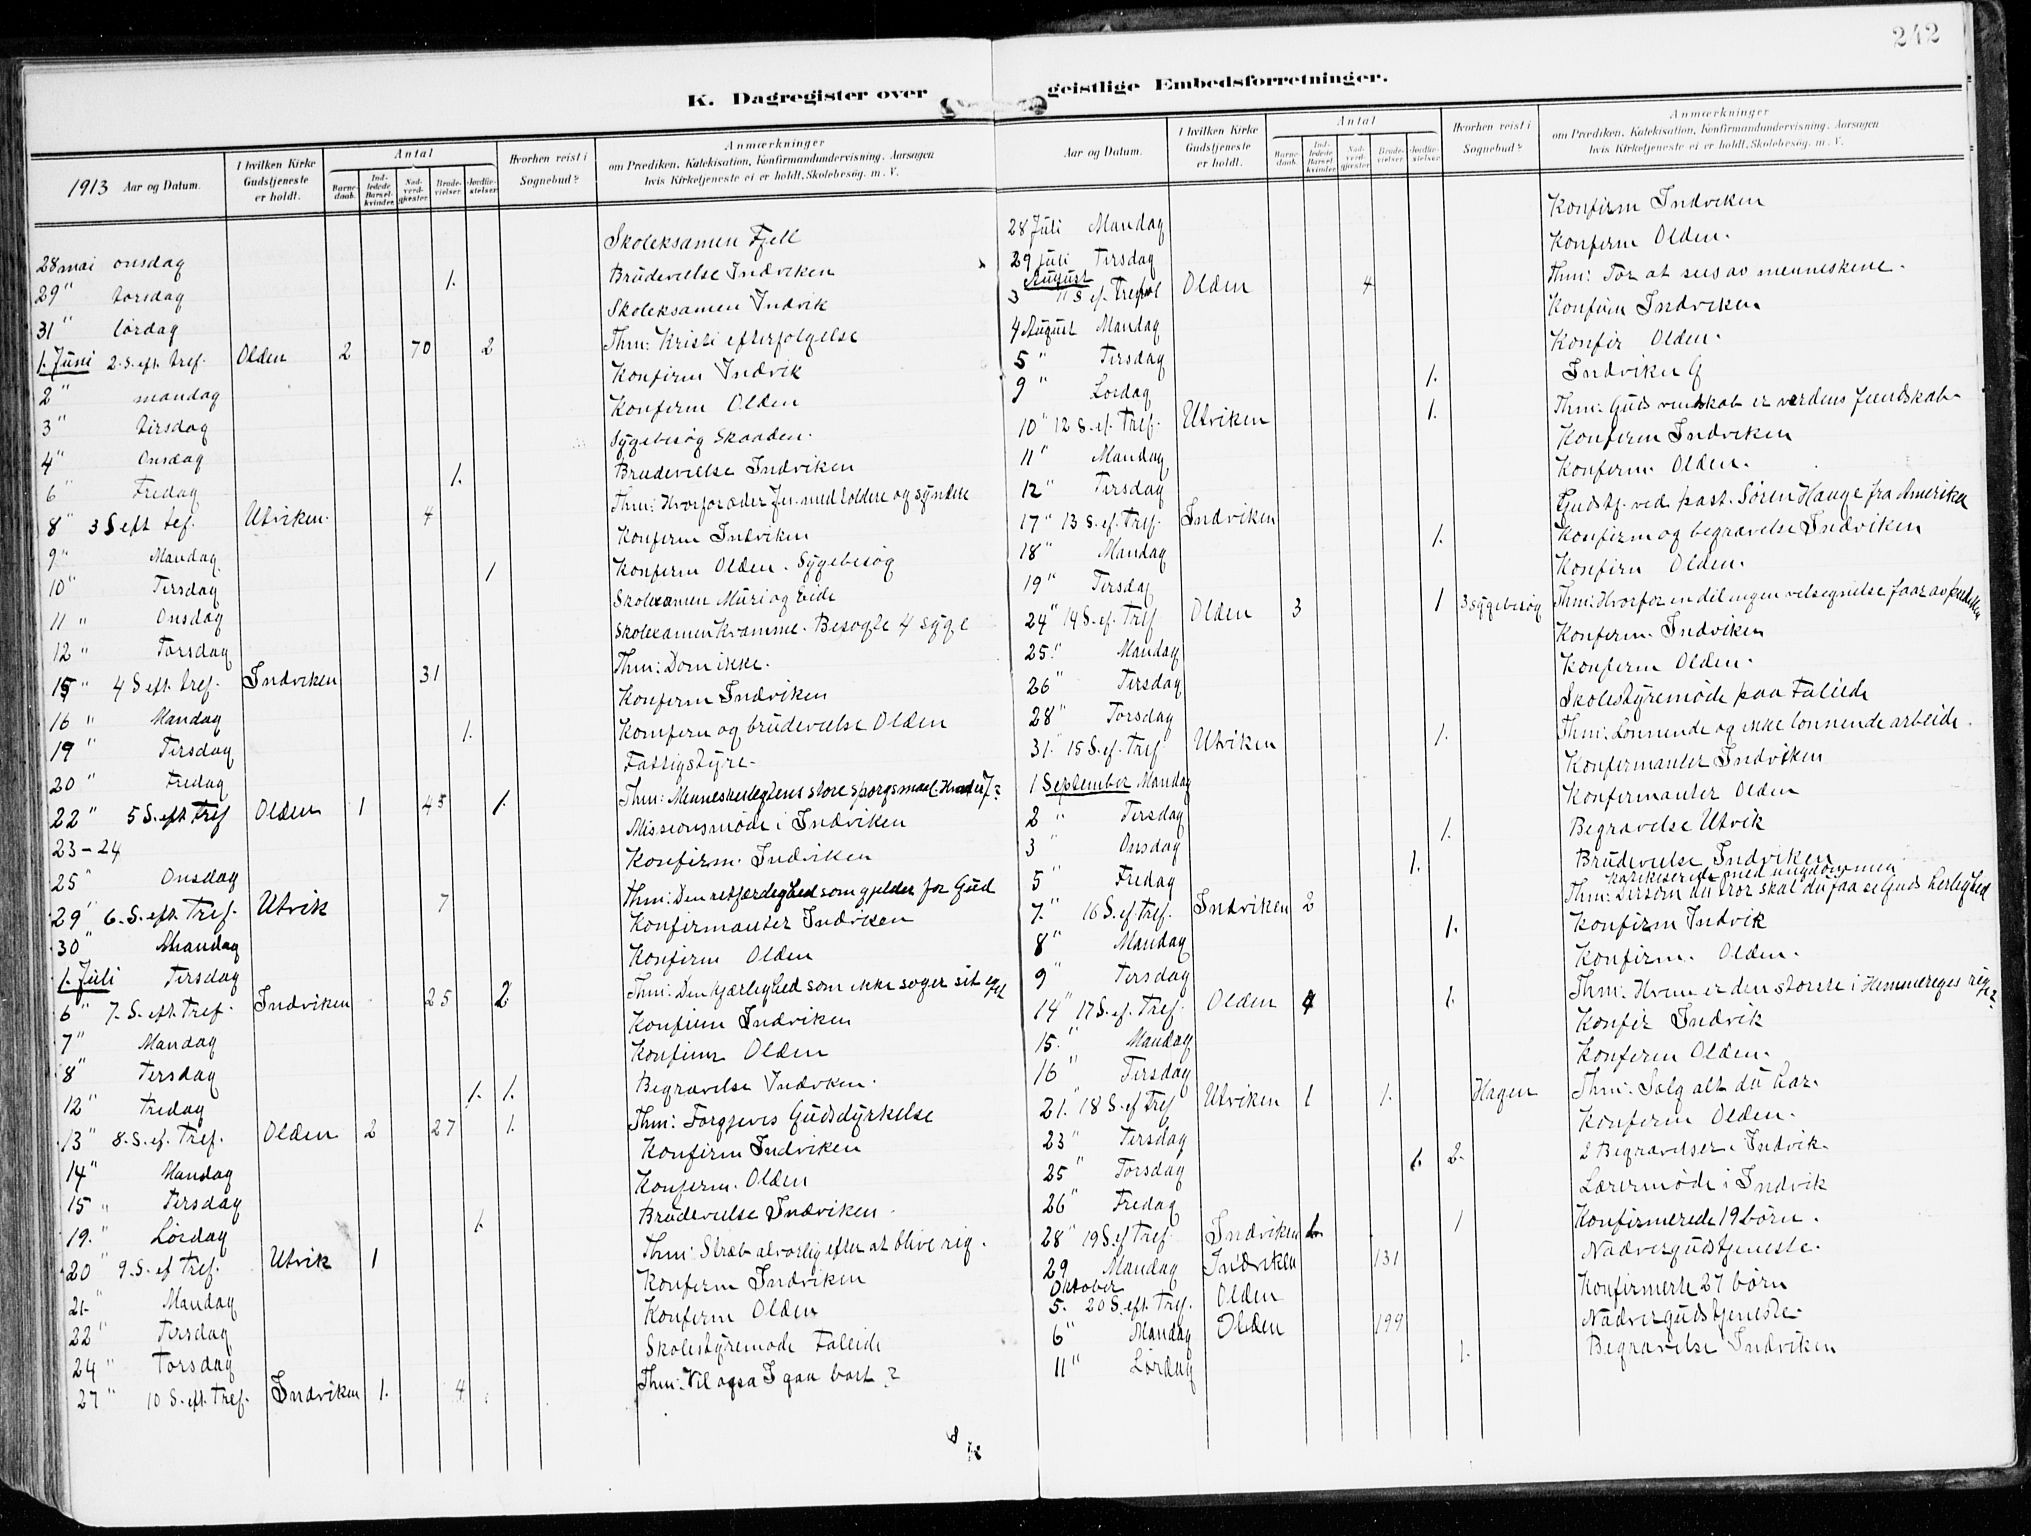 242
K. Dagregister over geistlige Embedsforretninger.
1913 Aar og Datum.
I hvilken Kirke Gudstjeneste er holdt.
Antal
Barnedaab.
Indledede Barselkvinder
Nadverdgjæster
Brudevielser
Jordfæstelser
Hvorhen reist i Sognebud?
Anmærkninger
om Prædiken, Katekisation, Konfirmandundervisning, Aarsagen
hvis Kirketjeneste ei er holdt, Skolebesøg. m. V.
28 mai onsdag Skoleksamen Fjell
29 " torsdag 1. Brudevielse Indviken
31 " lørdag Skoleksamen Indvik
1. Juni 2. S. eft. tref. Olden 2 70 2 Thm: Kristi efterfølgelse
2 " mandag Konfirm Indvik
3 " tirsdag Konfirm Olden
4 " Onsdag Sygebesøg Skaaden.
6 " Fredag 1. Brudevielse Indviken
8 " 3 S eft tref. Utviken. 4 Thm: Hvorfor æder Jes. med toldere og syndere
9 " Mandag Konfirm Indviken
10 " Tirsdag 1 Konfirm Olden. Sygebesøg
11 " Onsdag Skolexamen Muri og Eide
12 " Torsdag Skolexamen Kvamme. Besøgte 4 syge
15 " 4 S eft. tref. Indviken 31 Thm: Døm ikke.
16 " Mandag Konfirm Indviken
19 " Tirsdag 1. Komfirm og brudevielse Olden
20 " Fredag Fattigstyre.
22 " 5 S. eft tref Olden 1 45 1. Thm: Menneskeslegtens store spørgsmaal:
23 - 24 Missionsmøde i Indviken
25 " Onsdag Konfirm. Indviken
29 " 6. S. eft. Tref. Utvik 7 Thm: Den retfærdighed som gjelder for Gud
30 " Mandag Konfirmanter Indviken
1. Juli Tirsdag Konfirm Olden
6 " 7. S. eft. Tref. Indviken 25 2 Thm: Den kjærlighed som ikke søger sit eget
7 " Mandag Konfirm Indviken
8 " Tirsdag Konfirm Olden
12 " Fredag 1. 1. Begravelse Indviken.
13 " 8. S. ef. Tref. Olden 2 27 1. Thm: Forgjeves Gudsdyrkelse
14 " Mandag Konfirm Indviken
15 " Tirsdag Konfirm. Olden
19. " Lørdag 1. Brudevielse Indviken.
20 " 9. S. ef Tref. Utvik 1 Thm: Stræb alvorlig efter at blive rig.
21. " Mandag Konfirm Indviken
22 " Tirsdag Konfirm Olden
24 " Torsdag Skolestyremøde Faleide
27 " 10 S. eft. Tref. Indviken 1. 4 Thm: Vil ogsa I gaa bort?
Aar og Datum.
I hvilken Kirke Gudstjeneste er holdt.
Antal
Barnedaab.
Indledede Barselkvinder
Nadverdgjester
Brudevielser
Jordfæstelser
Hvorhen reist i Sognebud?
Anmærkninger
om Prædiken, Katekisation, Konfirmandundervisning, Aarsagen
hvis Kirketjeneste ei er holdt, Skolebesøg. m. V.
28 Juli Mandag Konfirm Indviken
29 Juli Tirsdag Konfirm Olden.
August
3 11 S ef. Tref Olden 4 Thm: For at sees av menneskene.
4 August Mandag Konfirm Indviken
5 " Tirsdag Konfir Olden.
9 " Lørdag 1. Indviken
10 " 12 S. ef. Tref. Utviken 1. Thm: Guds venskab er verdens fiendskab.
11 " Mandag Konfirm Indviken
12 " Tirsdag Konfirm. Olden.
17 " 13 S. ef. Tref. Indviken Gudstj. ved past. Søren Hauge fra Amerika
18 " Mandag 1. Konfirm og begravelse Indviken
19 " Tirsdag Konfirm Olden.
24 " 14 S. ef. Tref Olden 3 1 3 sygebesøg Thm: Hvorfor en del ingen velsegnelse faar av
25. " Mandag Konfirm. Indviken
26 " Tirsdag Konfirm Olden.
28 " Torsdag Skolestyremøde paa Faleide
31. " 15 S. ef. Tref Utviken 1. Thm: Lønnende og ikke lønnende arbeide.
1 September Mandag Konfirmanter Indviken
2 " Tirsdag Konfirmanter Olden
3 Onsdag 1. Begravelse Utvik
5 " Fredag 1. Brudevielse Indviken
Katekiserede med ungdommen
7. " 16 S. ef. Tref. Indviken 2 Thm: Dersom du tror skal du faa se Guds herlighed
8 " Mandag 1. Konfirm Indvik
9 " Tirsdag Konfirm. Olden.
14 " 17 S. ef. Tref. Olden 4 1. Thm: Hvem er den største i Himmeriges rige?
15. " Mandag Konfir Indvik
16 " Tirsdag Konfirm Olden.
21. " 18 S. ef Tref Utviken 1 1. Hagen Thm: Sælg alt du har.
23 " Tirsdag Konfirm Olden.
25 " Torsdag 1. 2. 2 Begravelser i Indvik.
26 " Fredag Lærermøde i Indvik
28 " 19 S. ef Tref. Indviken 1 Konfirmerede 19 børn.
29 Mandag Indviken 131 Nadvergudstjeneste.
Oktober
5. 20 S. eft. Tref. Olden Konfirmerte 27 børn
6 " Mandag Olden 199 Nadvergudstjeneste.
11 " Lørdag 1. Begravelse Indviken